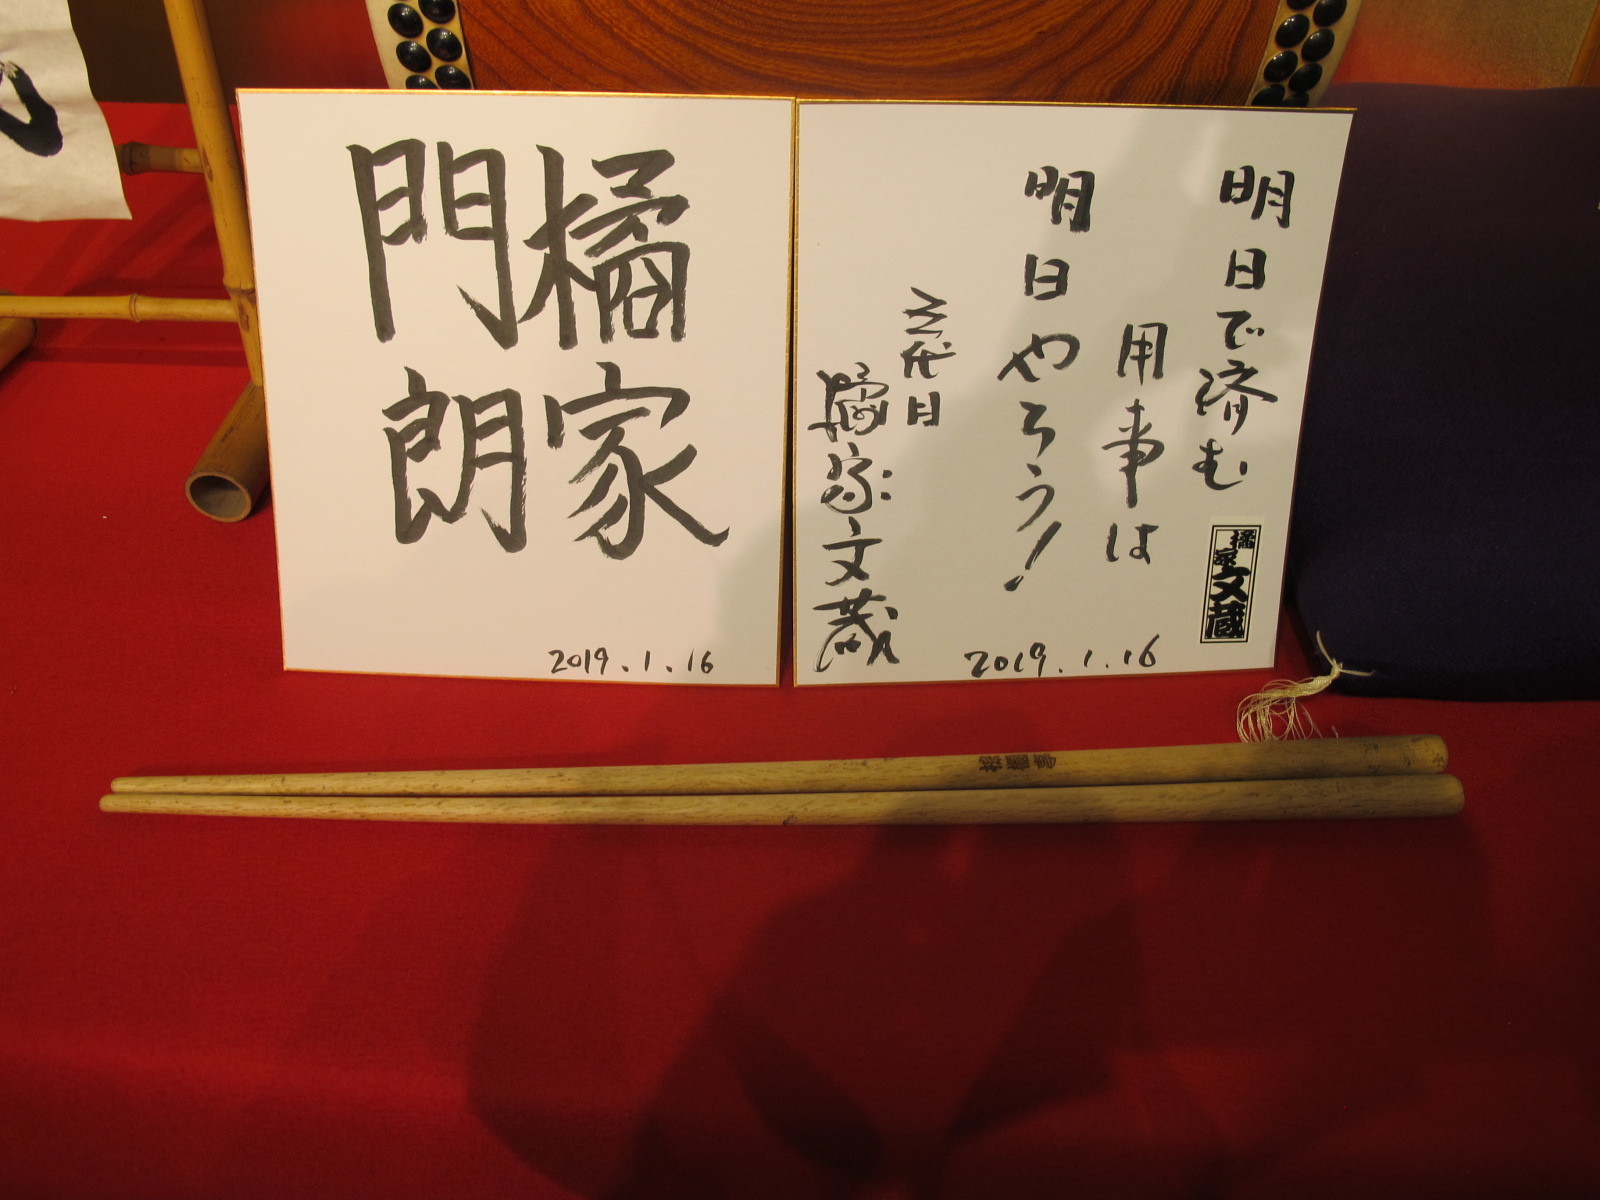 橘家
門朗
2019.1.16
明日で済む
用事は
明日やろう!
三代目
橘家文蔵
2019.1.16
橘家文蔵